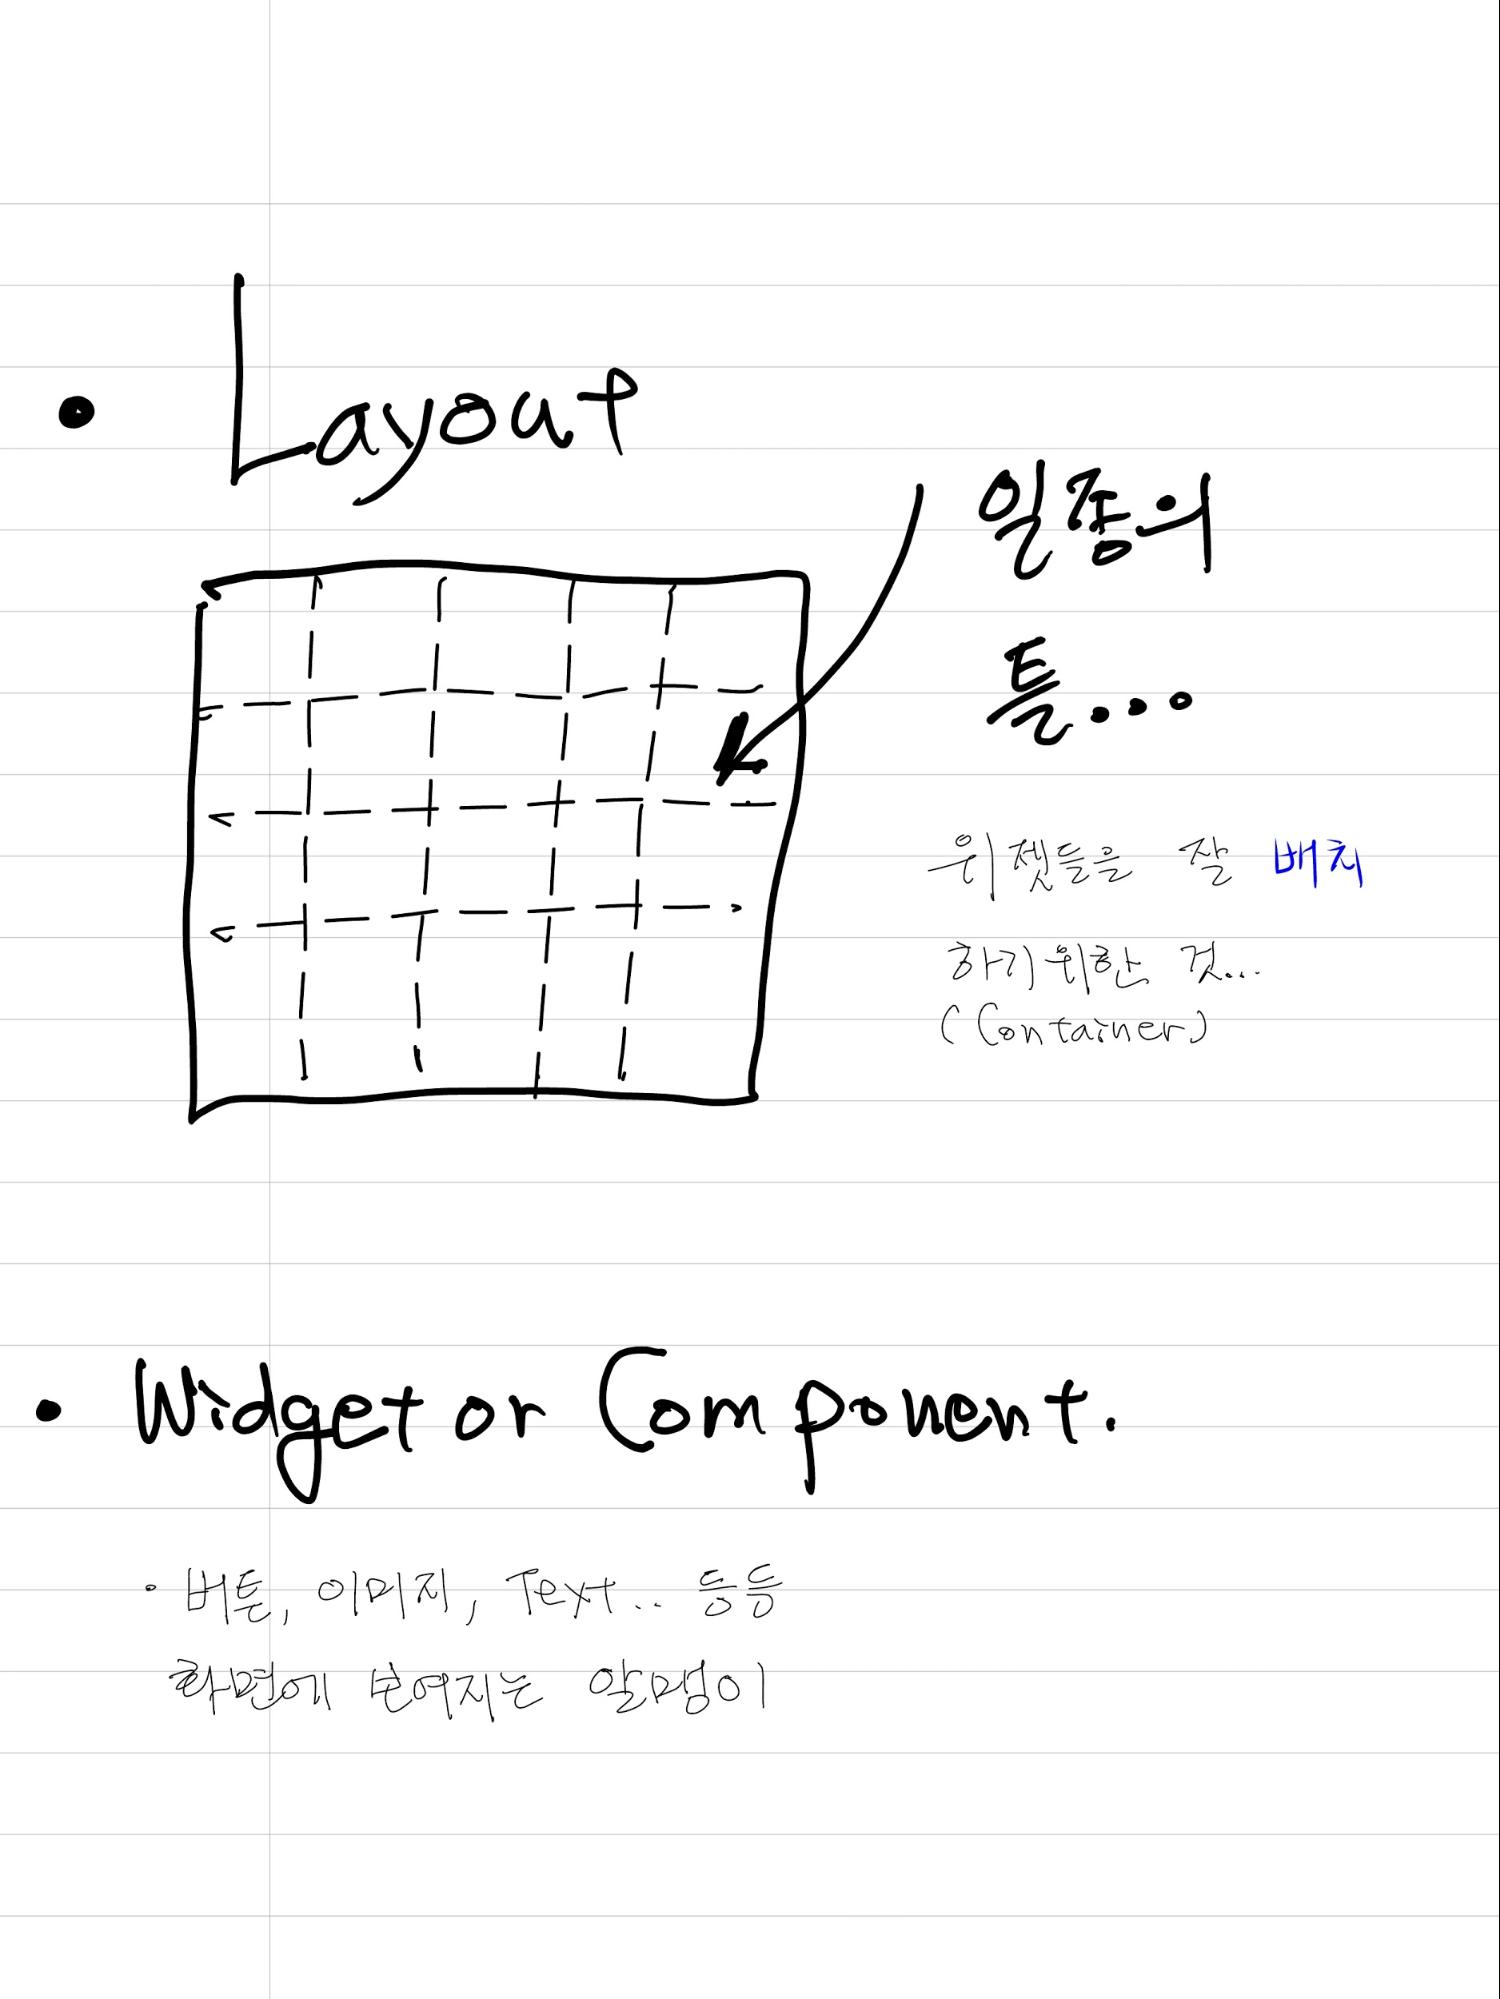 • Layout
일종의
틀...
위젯들을 잘 배치
하기위한 것...
(Container)
• Widget or Component.
• 버튼, 이미지, Text.. 등등
화면에 보여지는 알맹이